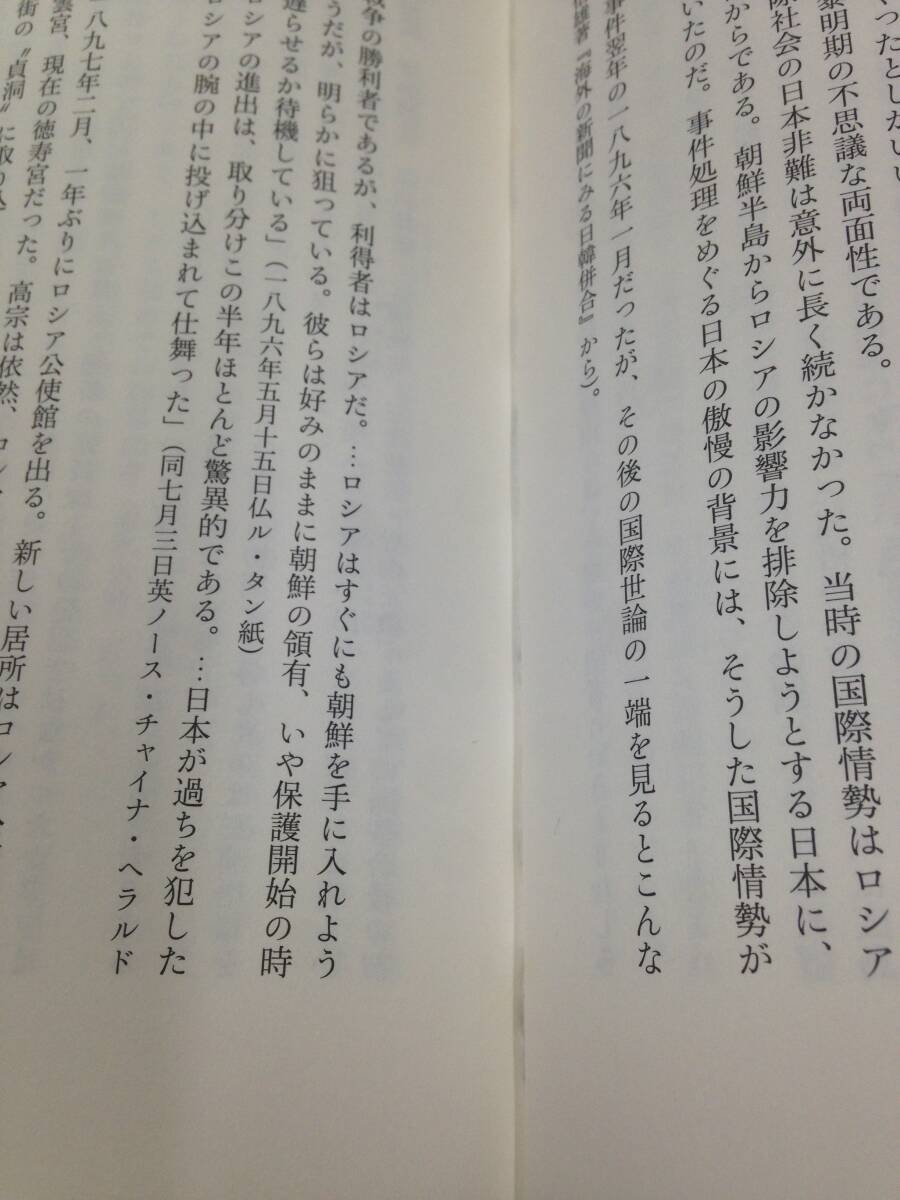 ったとしかいい
黎明期の不思議な両面性である。
際社会の日本非難は意外に長く続かなかった。当時の国際情勢はロシア
からである。朝鮮半島からロシアの影響力を排除しようとする日本に、
いたのだ。事件処理をめぐる日本の傲慢の背景には、そうした国際情勢が
事件翌年の一八九六年一月だったが、その後の国際世論の一端を見るとこんな
雄著『海外の新聞にみる日韓併合』から）。
戦争の勝利者であるが、利得者はロシアだ。…ロシアはすぐにも朝鮮を手に入れよう
うだが、明らかに狙っている。彼らは好みのままに朝鮮の領有、いや保護開始の時
遅らせるか待機している」（一八九六年五月十五日仏ル・タン紙）
ロシアの進出は、取り分けこの半年ほとんど驚異的である。…日本が過ちを犯した
ロシアの腕の中に投げ込まれて仕舞った」（同七月三日英ノース・チャイナ・ヘラルド
八九七年二月、一年ぶりにロシア公使館を出る。新しい居所はロシア
雲宮、現在の徳寿宮だった。高宗は依然、ロシ
街の〝貞洞〟に取り込